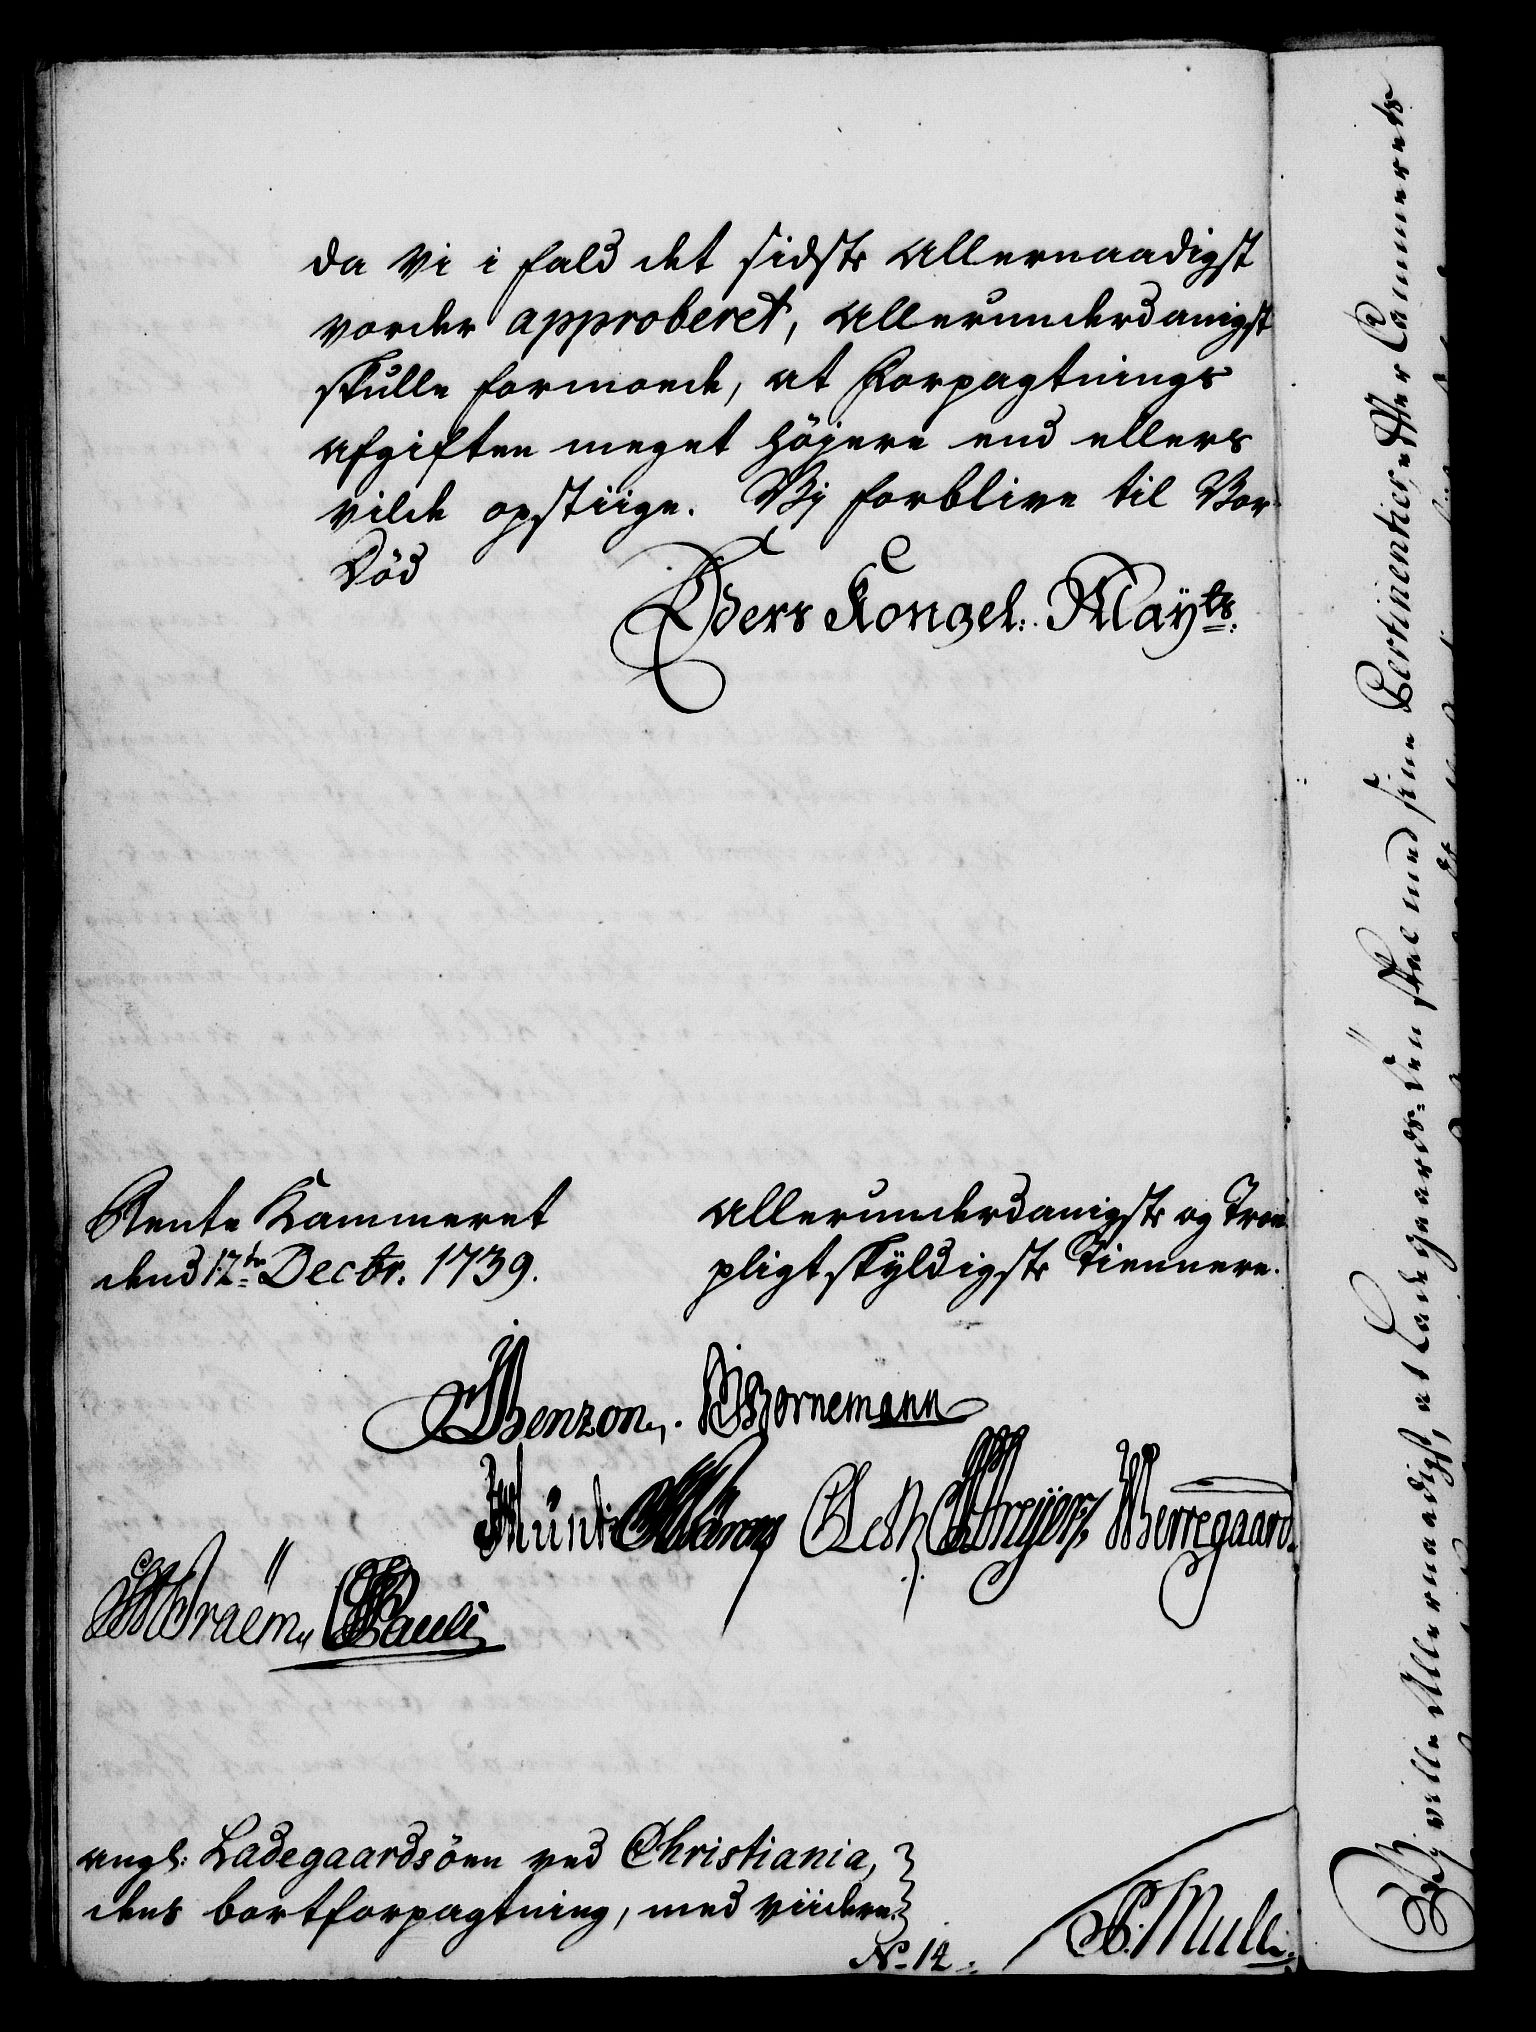 da vi i fald det sidste allernaadigst
vorder approberet, allerunderdanigst
skulle formoede, at Forpagtnings
afgiften meget höjere end ellers
vilde opstiige. Vij forblive til Vor
Död
Eders Kongel: Mayts:
Rente Kammeret
dend 12te Decbr. 1739.
allerunderdanigste og Troe
pligtskyldigste Tiennere.
Benzon. Bornemann
Münt Berregaard.
Fraem. Pauli
angl: Ladegaardsöen ved Christiania,
dens bortforpagtning, med viidere.
No. 12.
Mull
Vij ville Allernaadigst, at Ladegaards-Öen skal med sine Pertinentier, efter Cammerets